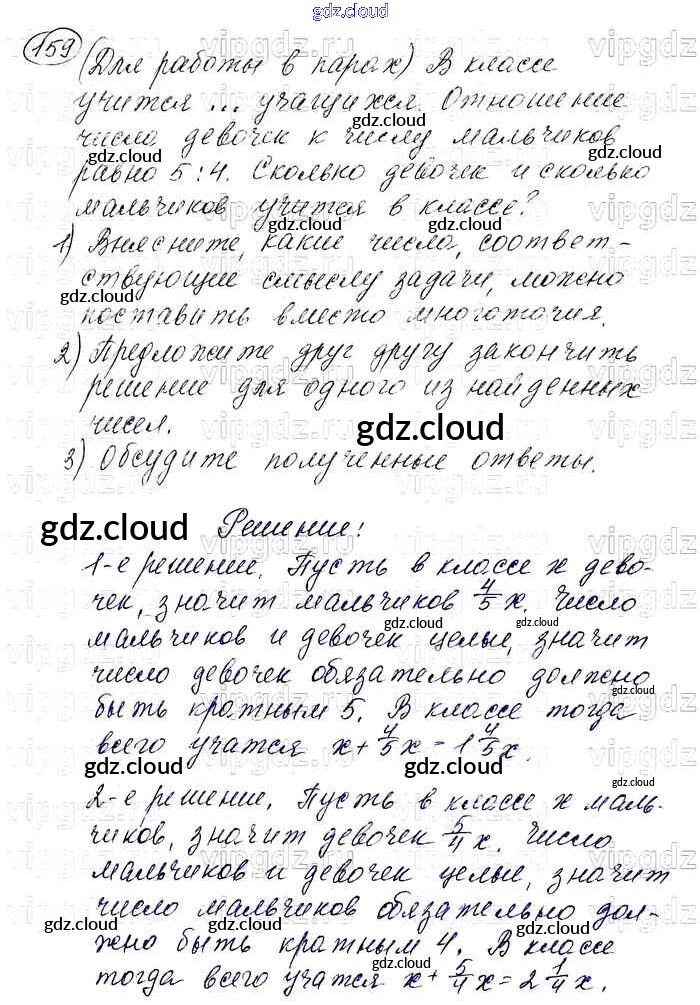 gdz.cloud
159 (Для работы в парах) В классе
учится ... учащихся. Отношение
числа девочек к числу мальчиков
равно 5:4. Сколько девочек и сколько
мальчиков учится в классе?
1) Выясните, какие числа, соответ-
ствующие смыслу задачи, можно
поставить вместо многоточия.
2) Предложите друг другу закончить
решение для одного из найденных
чисел.
gdz.cloud
3) Обсудите полученные ответы.
gdz.cloud Решение:
1-е решение. Пусть в классе x дево-
чек, значит мальчиков 4/5 x. Число
мальчиков и девочек целые, значит
число девочек обязательно должно
быть кратным 5. В классе тогда
всего учатся x + 4/5 x = 1 4/5 x.
2-е решение. Пусть в классе x маль-
чиков, значит девочек 5/4 x. Число
мальчиков и девочек целые, значит
число мальчиков обязательно дол-
жно быть кратным 4. В классе
тогда всего учатся x + 5/4 x = 2 1/4 x.